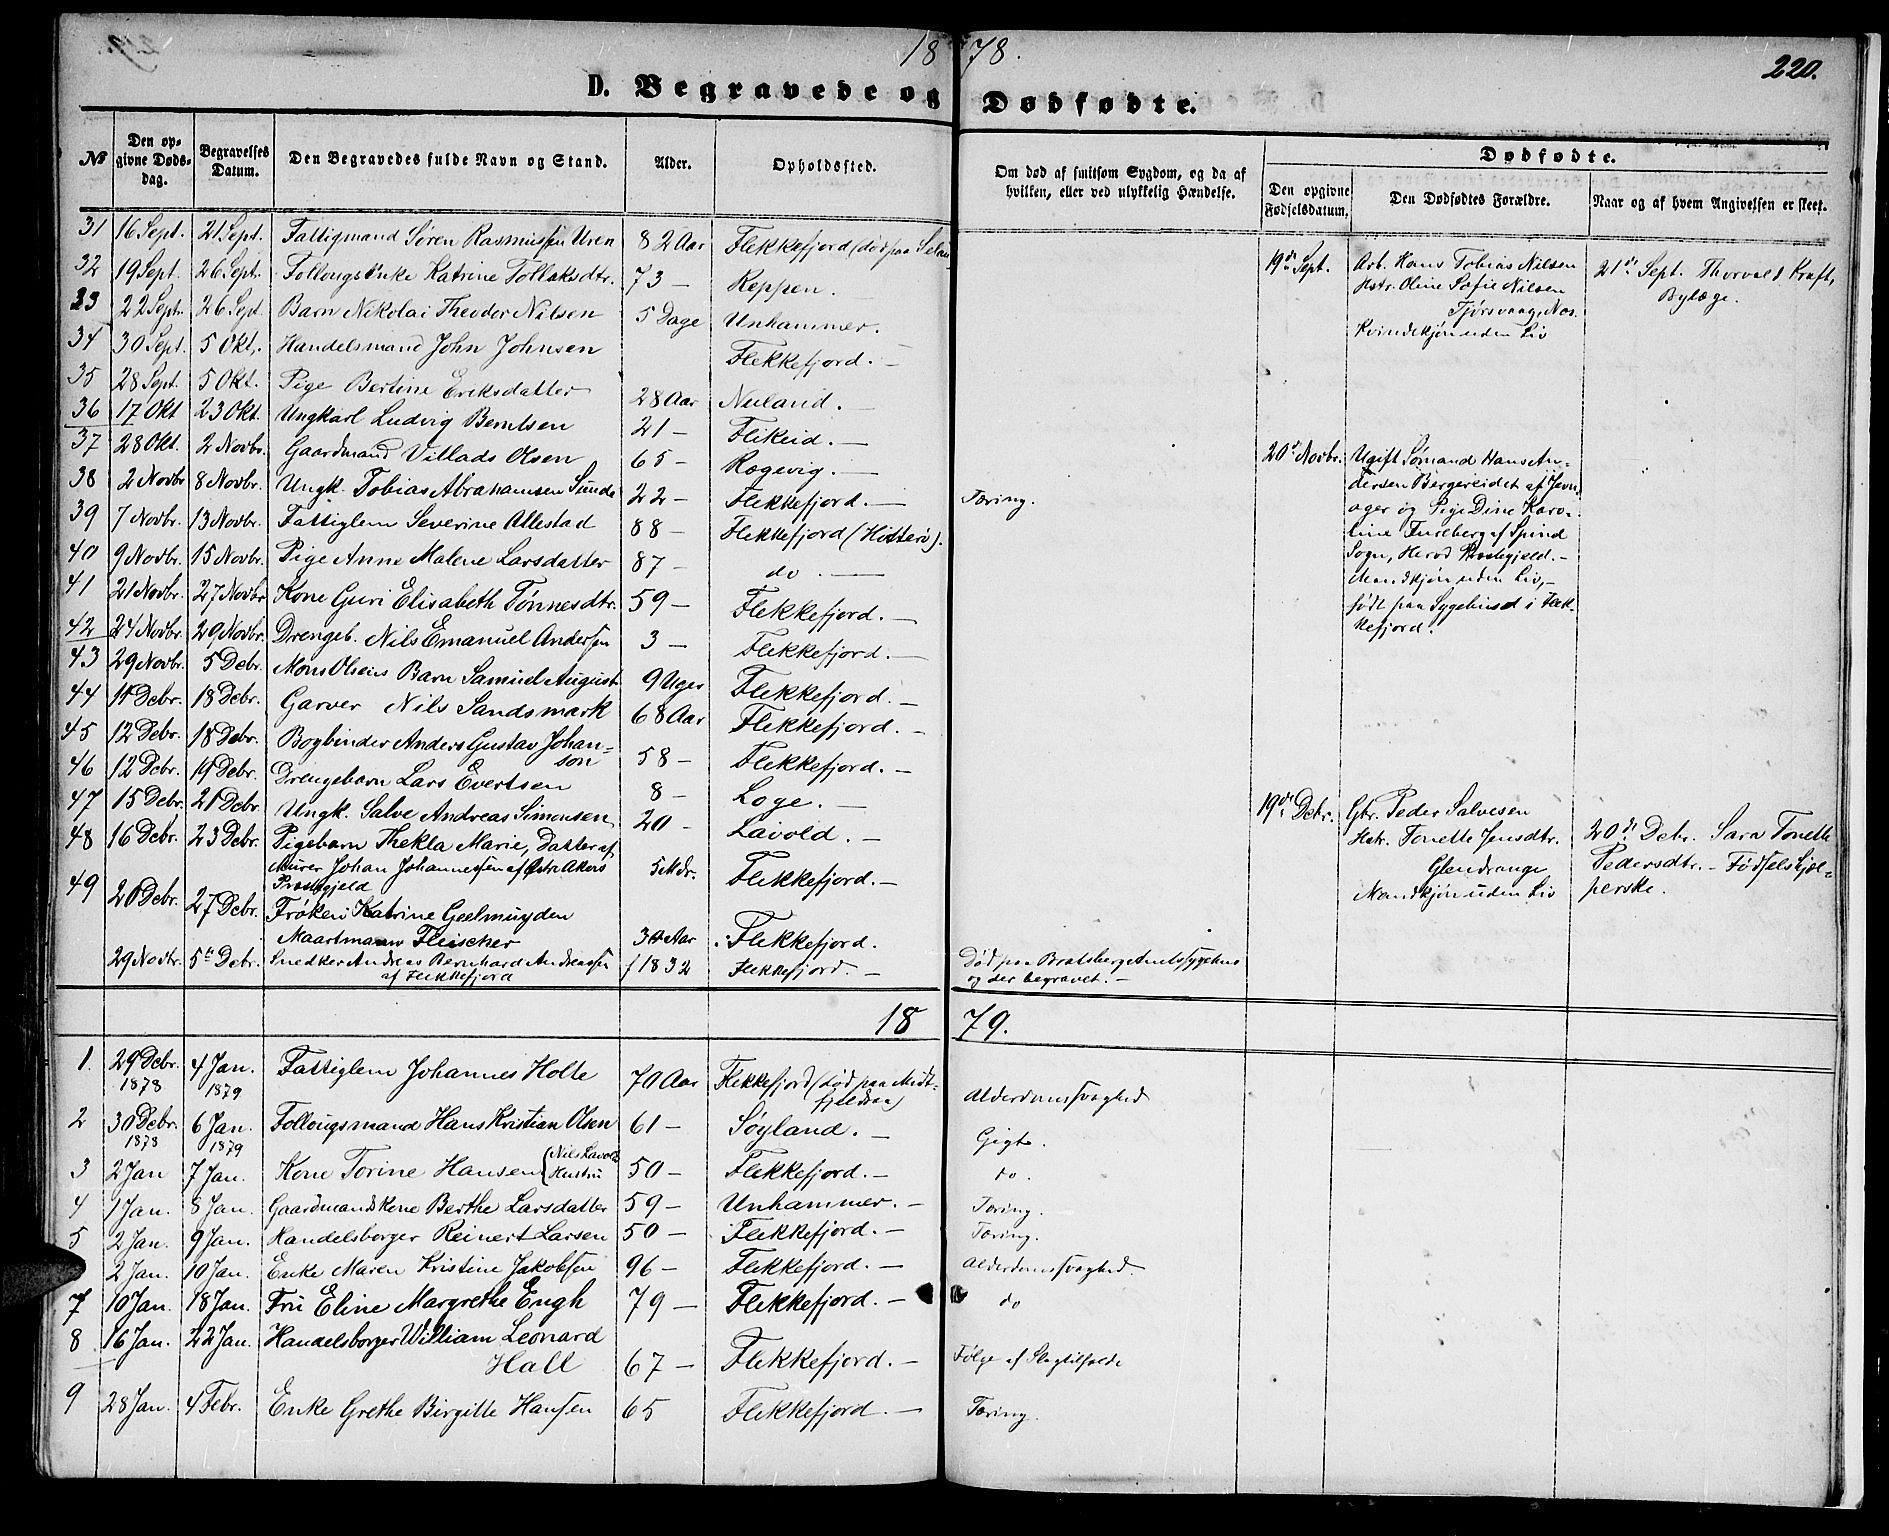 18 78.
220.
D. Begravede og Dødfødte.
№ | Den opgivne Dødsdag. | Begravelses Datum. | Den Begravedes fulde Navn og Stand. | Alder. | Opholdssted. | Om død af smitsom Sygdom, og da af hvilken, eller ved ulykkelig Hændelse. | Dødfødte. Den opgivne Fødselsdatum. | Den Dødfødtes Forældre. | Naar og af hvem Angivelsen er skeet.
31 16 Sept. 21 Sept. Fattigmand Søren Rasmussen Uren 82 Aar Flekkefjord (død paa
32 19 Sept. 26 Sept. Follougsenke Katrine Tollaksdtr. 73 — Reppen. —
33 22 Sept. 26 Sept. Barn Nikolai Theodor Nilsen 5 Dage Unhammer.
34 30 Sept. 5 Okt. Handelsmand John Johnsen Flekkefjord. —
35 28 Sept. 5 Okt. Pige Bertine Eriksdatter 28 Aar Nuland. —
36 17 Okt 23 Okt. Ungkarl Ludvig Berntsen 21 — Flikeid. —
37 28 Okt. 2 Novbr. Gaardmand Villads Olsen 65 — Rogevig. —
38 2 Novbr 8 Novbr. Ungk. Tobias Abrahamsen Sunde 22 — Flekkefjord. — Tæring.
39 7 Novbr. 13 Novbr. Fattiglem Severine Allestad 88 — Flekkefjord (Hitterø).
40 9 Novbr. 15 Novbr. Pige Anne Malene Larsdatter 87 — do. —
41 21 Novbr. 27 Novbr Kone Guri Elisabeth Tønnesdtr. 59 — Flekkefjord. —
42 24 Novbr. 29 Novbr. Drengeb. Nils Emanuel Andersen 3 — Flekkefjord. —
43 29 Novbr. 5 Debr. Mons Olsens Barn Samuel August 9 Uger Flekkefjord. —
44 11 Debr. 18 Debr. Garver Nils Sandsmark 68 Aar Flekkefjord. —
45 12 Debr. 18 Debr. Bogbinder Anders Gustav Johan=
son 58 — Flekkefjord. —
46 12 Debr. 19 Debr. Drengebarn Lars Evertsen 8 — Loge. —
47 15 Debr. 21 Debr. Ungk. Salve Andreas Simonsen 20 — Lavold. —
48 16 Debr. 23 Debr. Pigebarn Thekla Marie, Datter af
Murer Johan Johannessen af Østre Akers
Præstegjeld 5 Mdr. Flekkefjord. —
49 20 Debr. 27 Debr. Frøken Katrine Geelmuyden
Maartmann Fleischer Aar Flekkefjord.
29 Novbr. 5te Debr. Snedker Andreas Bernhard Andreassen
af Flekkefjord f 1832 Flekkefjord. — Død paa Bratsberg Amtssygehus
og der begravet. —
19de Sept. Arb. Hans Tobias Nilsen
Hstr. Oline Sofie Nilsen
Tjørsvaag, Nes.
Kvindekjøn uden Liv
21de Sept. Thorvald Kraft,
Bylæge.
20de Novbr. Ugift Sømand Hans An-
dersen Bergereidet af Jevn-
ager og Pige Dine Karo-
line Furlberg af Spind
Sogn, Herad Præstegjeld. —
Mandkjøn uden Liv, —
født paa Sygehuset i Flek-
kefjord.
19de Debr. Gbr. Peder Salvesen
Hstr. Tonette Jensdtr.
Glendrange
Mandkjøn uden Liv
20de Debr. Sara Tonette
Pedersdtr. — Fødselshjæl=
perske.
18 79.
1. 29 Debr. 1878 4 Jan. 1879 Fattiglem Johannes Holte 70 Aar Flekkefjord (død paa Midt-
fjeldsaa) Alderdomssvaghed
2 30 Debr. 1878 6 Jan. 1879 Follougsmand Hans Kristian Olsen 61 — Søyland. — Gigt.
3 2 Jan 7 Jan. Kone Torine Hansen (Nils Lavolds
Hustru 50 — Flekkefjord. — do.
4 1 Jan. 8 Jan. Gaardmandskone Berthe Larsdatter 59 — Unhammer. — Tæring.
5 2 Jan. 9 Jan. Handelsborger Reinert Larsen 50 — Flekkefjord. — Tæring.
2 Jan. 10 Jan. Enke Maren Kristine Jakobsen 96 — Flekkefjord. — Alderdomssvaghed.
7 10 Jan. 18 Jan. Fru Eline Margrethe Engh 79 — Flekkefjord. — do
8 16 Jan. 22 Jan. Handelsborger William Leonard
Hall 67 — Flekkefjord. — Følge af Slagtilfælde
9 28 Jan. 4 Febr. Enke Grethe Birgitte Hansen 65 Flekkefjord. — Tæring.